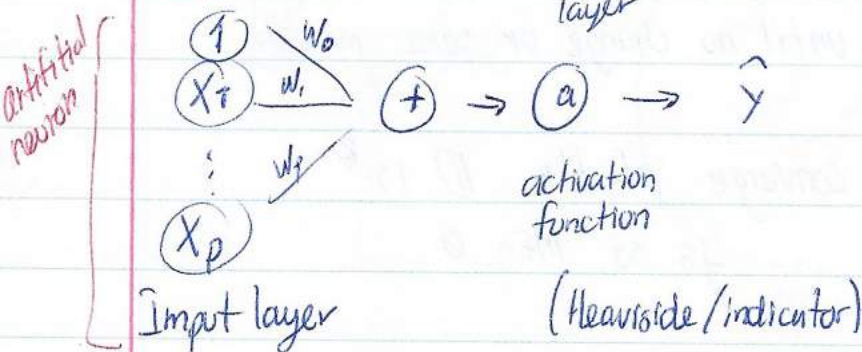 layer
artifitial
neuron
1 w0
X1 w1 + → a → ŷ
⋮ wp
Xp
activation
function
Imput layer (Heaviside/indicator)